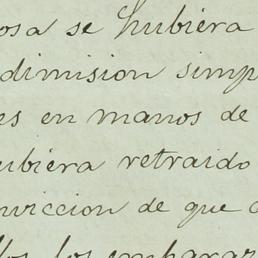 osa se hubiera
dimision simp
es en manos de
ubiera retraido
nviccion de que
los